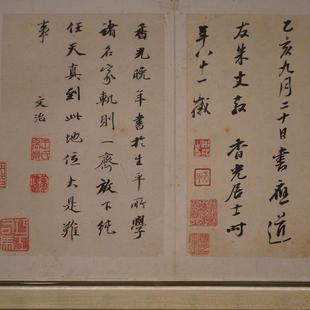 乙亥九月二十日書應道
友朱丈 香光居士時
年八十一歲
香光晚年書於生平所學
諸名家軌則一齊放下純
任天真到此地位大是難
事 文治